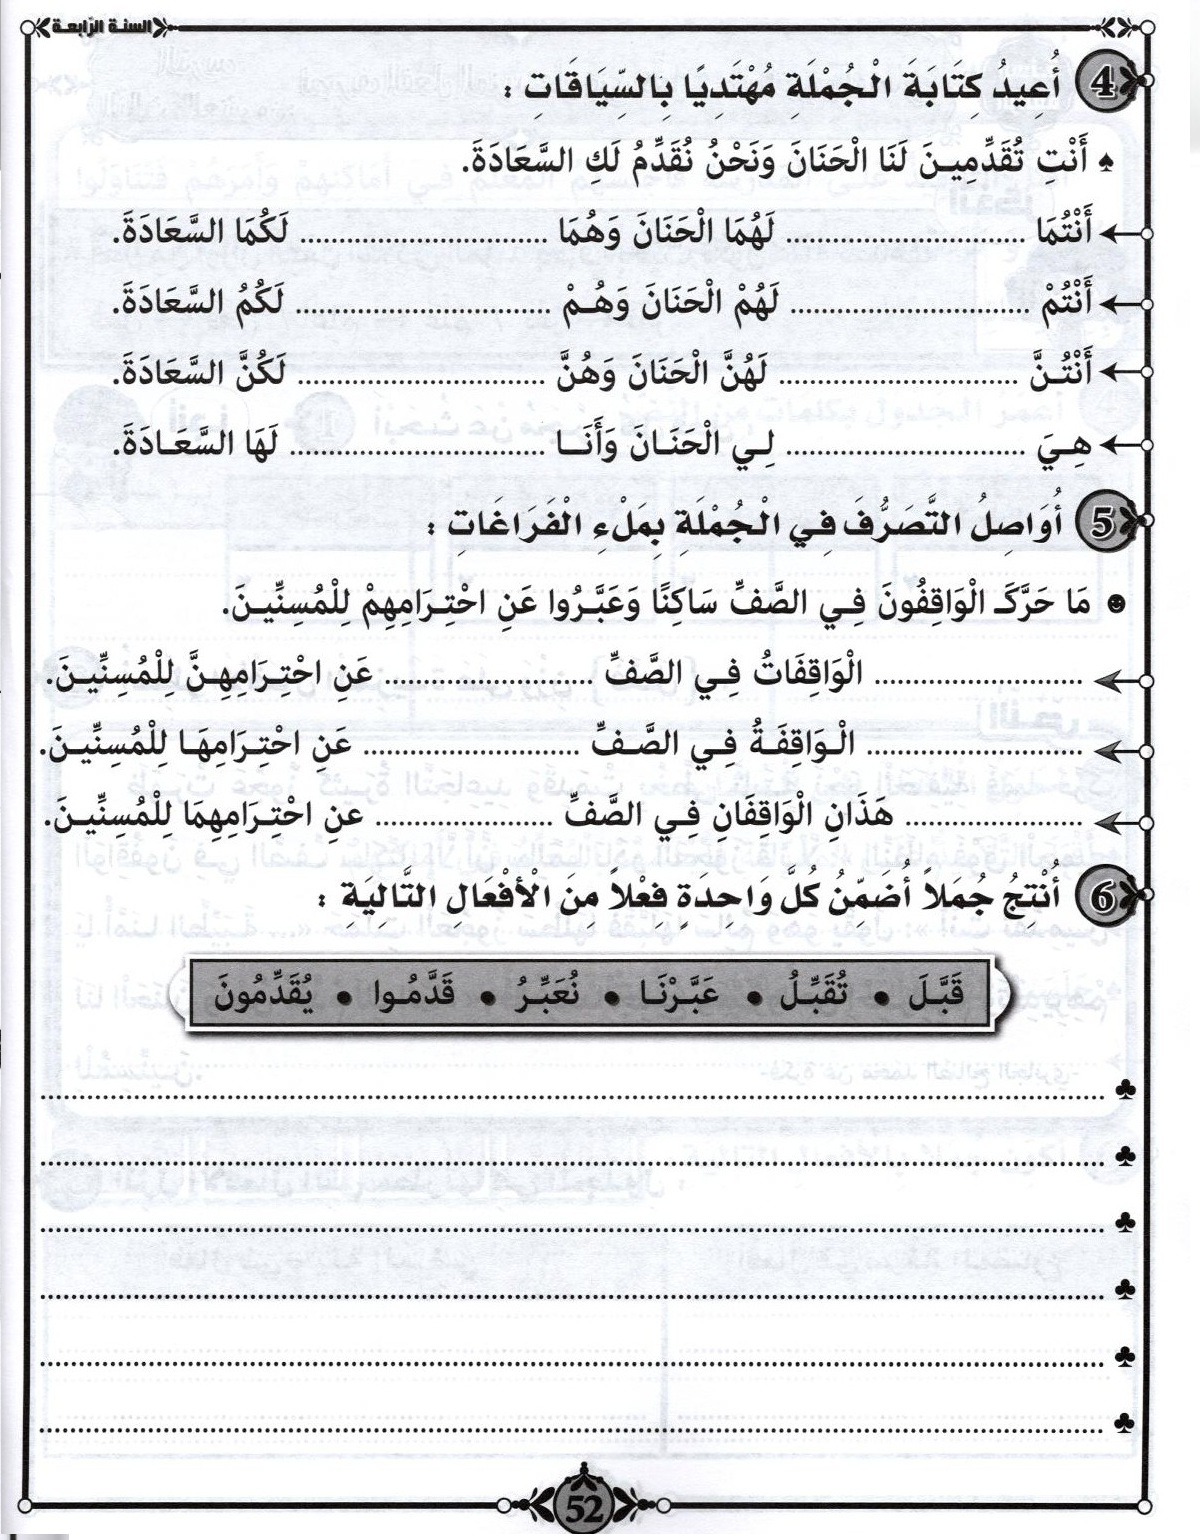 السنة الرّابعة
4 أُعِيدُ كِتَابَةَ الْجُمْلَةِ مُهْتَدِيًا بِالسِّيَاقَاتِ :
♠ أَنْتِ تُقَدِّمِينَ لَنَا الْحَنَانَ وَنَحْنُ نُقَدِّمُ لَكِ السَّعَادَةَ.
أَنْتُمَا ........................ لَهُمَا الْحَنَانَ وَهُمَا ........................ لَكُمَا السَّعَادَةَ.
أَنْتُمْ ........................ لَهُمْ الْحَنَانَ وَهُمْ ........................ لَكُمُ السَّعَادَةَ.
أَنْتُنَّ ........................ لَهُنَّ الْحَنَانَ وَهُنَّ ........................ لَكُنَّ السَّعَادَةَ.
هِيَ ........................ لِي الْحَنَانَ وَأَنَا ........................ لَهَا السَّعَادَةَ.
5 أُوَاصِلُ التَّصَرُّفَ فِي الْجُمْلَةِ بِمَلْءِ الْفَرَاغَاتِ :
مَا حَرَّكَ الْوَاقِفُونَ فِي الصَّفِّ سَاكِنًا وَعَبَّرُوا عَنِ احْتِرَامِهِمْ لِلْمُسِنِّينَ.
........................ الْوَاقِفَاتُ فِي الصَّفِّ ........................ عَنِ احْتِرَامِهِنَّ لِلْمُسِنِّينَ.
........................ الْوَاقِفَةُ فِي الصَّفِّ ........................ عَنِ احْتِرَامِهَا لِلْمُسِنِّينَ.
........................ هَذَانِ الْوَاقِفَانِ فِي الصَّفِّ ........................ عنِ احْتِرَامِهِمَا لِلْمُسِنِّينَ.
6 أُنْتِجُ جُمَلاً أُضَمِّنُ كُلَّ وَاحِدَةٍ فِعْلاً مِنَ الْأَفْعَالِ التَّالِيَةِ :
قَبَّلَ • تُقَبِّلُ • عَبَّرْنَا • نُعَبِّرُ • قَدَّمُوا • يُقَدِّمُونَ
52